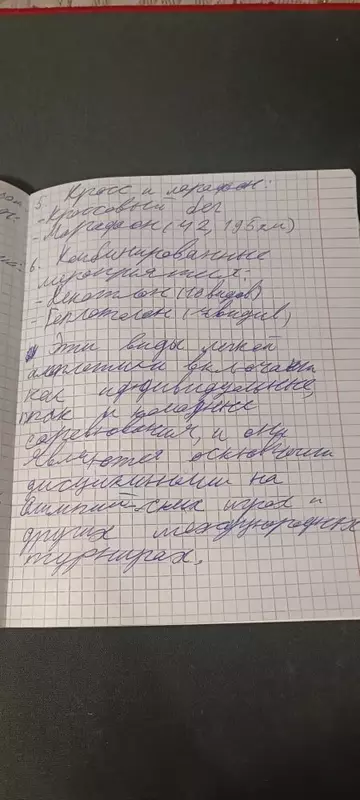 5. Кросс и марафон:
- Кроссовый бег
- Марафон (42,195 км)
6. Комбинированные
мероприятия:
- Декатлон (10 видов)
- Гептатлон (7 видов)
Эти виды легкой
атлетики включают
как индивидуальные,
так и командные
соревнования, и они
являются основными
дисциплинами на
Олимпийских играх и
других международных
турнирах.